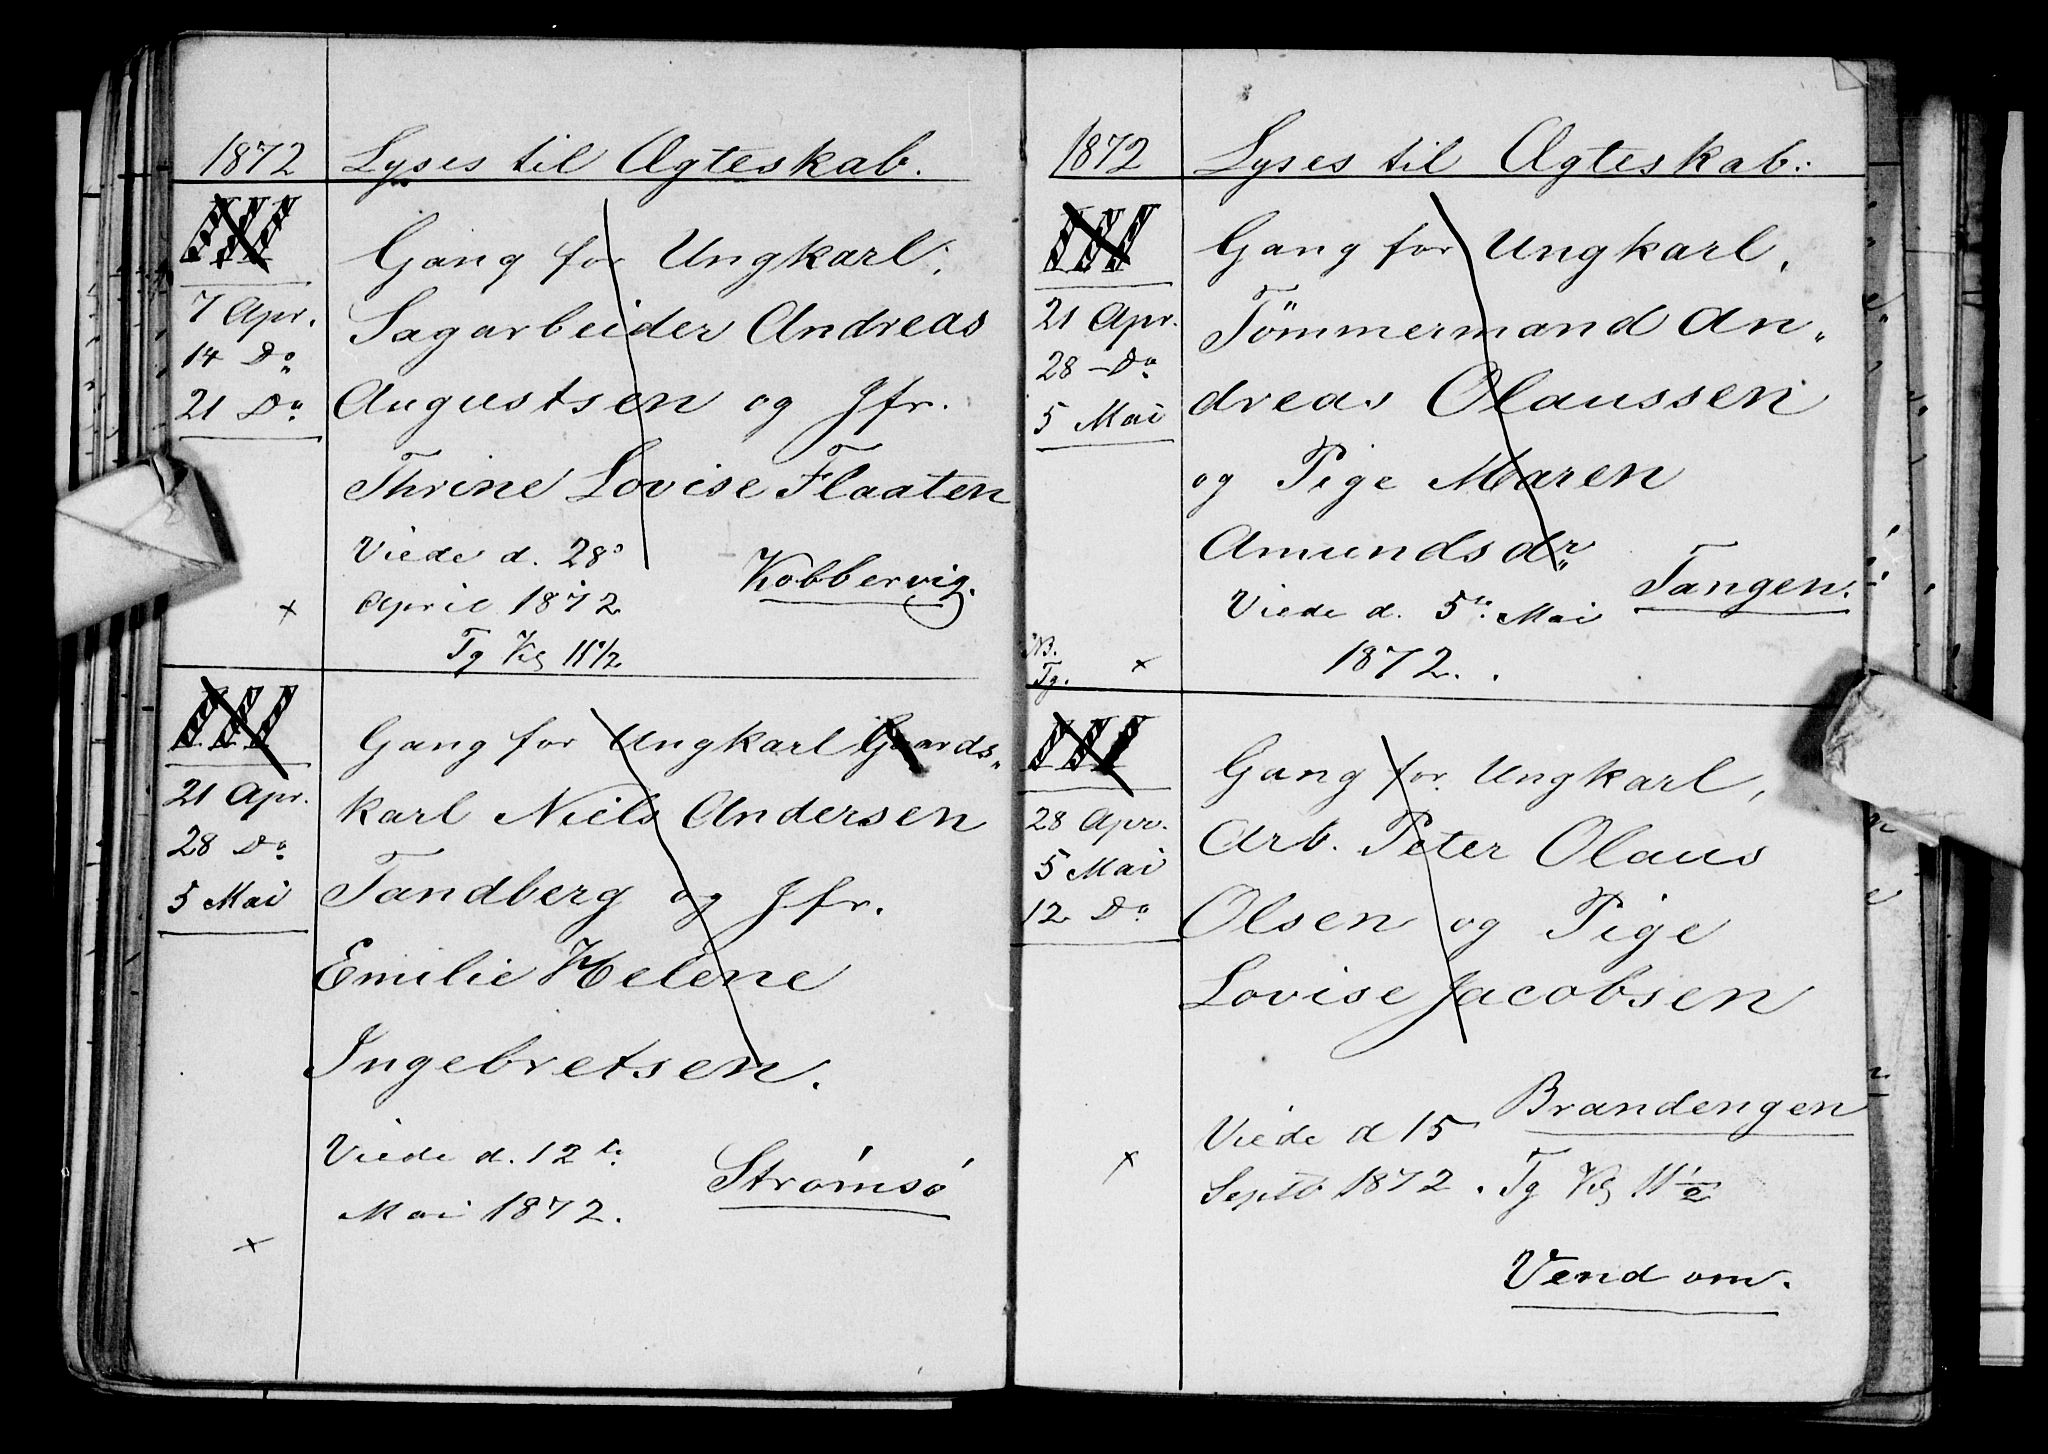 1872 Lyses til Ægteskab.
III Gang for Ungkarl.
7 Apr. Sagarbeider Andreas
14 Do
21 Do Augustsen og Jfr.
Thrine Lovise Flaaten
Viede d. 28de
April 1872 Kobbervig.
Tg Kl 11 1/2
III Gang for Ungkarl Gaards-
21 Apr. karl Niels Andersen
28 Do
5 Mai Tandberg og Jfr.
Emilie Helene
Ingebretsen.
Viede d. 12te
Mai 1872. Strømsø
1872 Lyses til Ægteskab.
III Gang for Ungkarl,
21 Apr. Tömmermand An-
28 Do
5 Mai dreas Olaussen
og Pige Maren
Amundsdr
Tangen.
Viede d. 5te Mai
NB.
Tg. 1872.
III Gang for Ungkarl,
28 Apr. Arb. Peter Olaus
5 Mai
12 Do Olsen og Pige
Lovise Jacobsen
Brandengen
Viede d 15
Septb 1872. Tg Kl 11 1/2
Vend om.